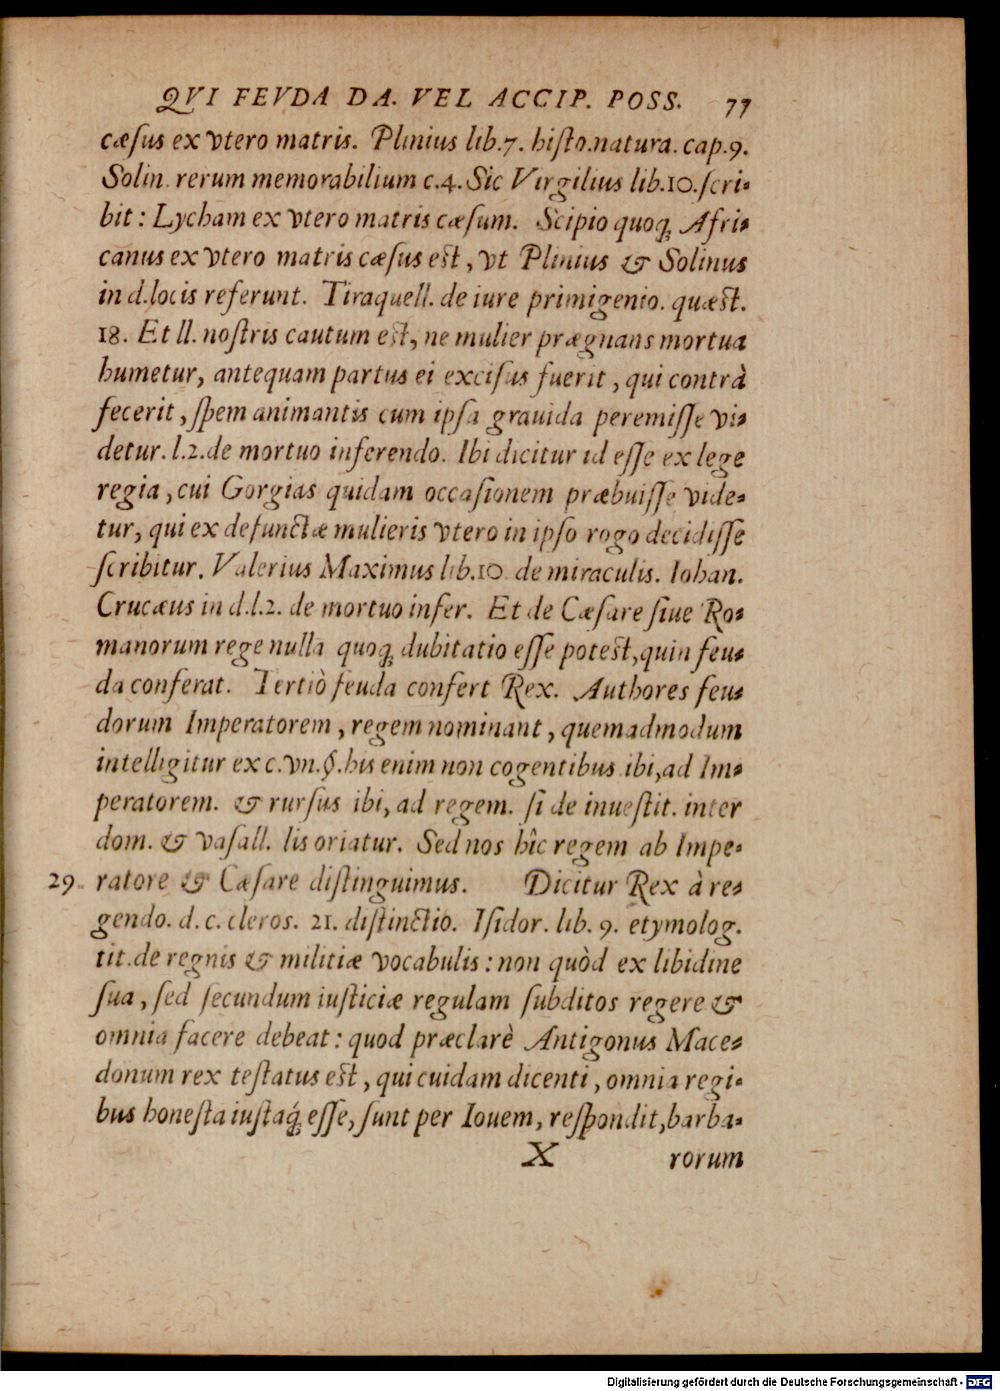 QVI FEVDA DA. VEL ACCIP. POSS. 77
cæſus ex vtero matris. Plinius lib.7. hiſto.natura. cap.9.
Solin. rerum memorabilium c.4. Sic Virgilius lib.10. ſcri-
bit: Lycham ex vtero matris cæſum. Scipio quoq́; Afri-
canus ex vtero matris cæſus est, vt Plinius & Solinus
in d.locis referunt. Tiraquell. de iure primigenio. quæst.
18. Et ll. noſtris cautum est, ne mulier prægnans mortua
humetur, antequam partus ei exciſus fuerit, qui contrà
fecerit, ſpem animantis cum ipſa grauida peremiſſe vi-
detur. l.2.de mortuo inferendo. Ibi dicitur id eſſe ex lege
regia, cui Gorgias quidam occaſionem præbuiſſe vide-
tur, qui ex defunctæ mulieris vtero in ipſo rogo decidiſſe
ſcribitur. Valerius Maximus lib.10. de miraculis. Iohan.
Crucæus in d.l.2. de mortuo infer. Et de Cæſare ſiue Ro-
manorum rege nulla quoq́; dubitatio eſſe potest, quin feu-
da conferat. Tertiò feuda confert Rex. Authores feu-
dorum Imperatorem, regem nominant, quemadmodum
intelligitur ex c. vn. §. his enim non cogentibus ibi, ad Im-
peratorem. & rurſus ibi, ad regem. ſi de inueſtit. inter
dom. & vaſall. lis oriatur. Sed nos hîc regem ab Impe-
29. ratore & Cæſare diſtinguimus. Dicitur Rex à re-
gendo. d. c. cleros. 21. diſtinctio. Iſidor. lib. 9. etymolog.
tit. de regnis & militiæ vocabulis: non quòd ex libidine
ſua, ſed ſecundum iuſticiæ regulam ſubditos regere &
omnia facere debeat: quod præclarè Antigonus Mace-
donum rex teſtatus est, qui cuidam dicenti, omnia regi-
bus honeſta iuſtaq́; eſſe, ſunt per Iouem, reſpondit, barba-
X rorum
Digitalisierung gefördert durch die Deutsche Forschungsgemeinschaft - DFG